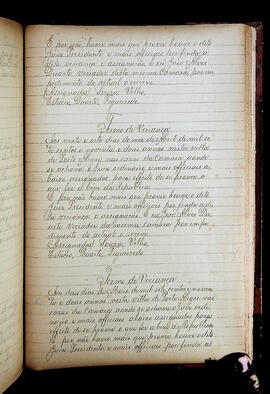 E por não haver mais que prover houve o dito
Juiz Presidente e mais officiaes por finda a
esta veriança e assignarão. E eu José Alves
Duarte veriador desta mesma Camara, por im-
pedimento do actual o escrevi.
Assignados: Souza, Velho,
Estacio, Duarte, Siqueira.
Termo de Veriança
Aos vinte e oito dias do mez de Abril de mil se-
te centos e noventa e dous annos nesta villa
de Porto Alegre nas casas da Camara aonde
se achava o Juiz ordinario e mais officiaes a-
baixo assignados para effeito de se prover o
que for a bem da Republica.
E por não haver mais que prover houve o dito
Juiz Presidente e mais officiaes por finda es-
ta veriança e assignarão. E eu José Alves Du-
arte veriador da mesma camara por impe-
dimento do actual o escrevi.
Assignados: Souza, Velho,
Estacio, Duarte, Siqueira.
Termo de Veriança
Aos dous dias de Maio de mil sete centos e noven-
ta e dous annos nesta villa de Porto Alegre nas
casas da Camara aonde se achava o Juiz ordi-
nario e mais officiaes abaixo assignados para
effeito de se prover o que for a bem da Republica
E por não haver mais que prover houve o dito
Juiz Presidente e mais officiaes por finda es